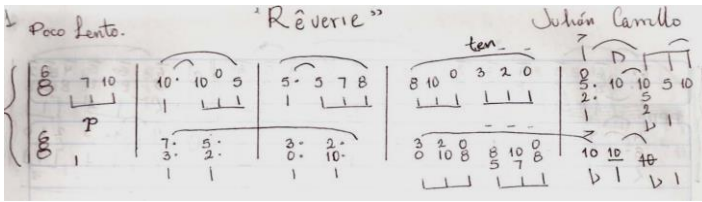 1 Poco Lento. "Rêverie" Julián Carrillo
ten_ _
6 8 7 10 10. 10 0 5 5. 5 7 8 8 10 0 3 2 0 0 5. 2. 10 10 5 2 5 10
p
6 8 7. 3. 5. 2. 3. 0. 2. 10. 3 0 2 10 0 8 8 5 10 7 0 8 10 10 10